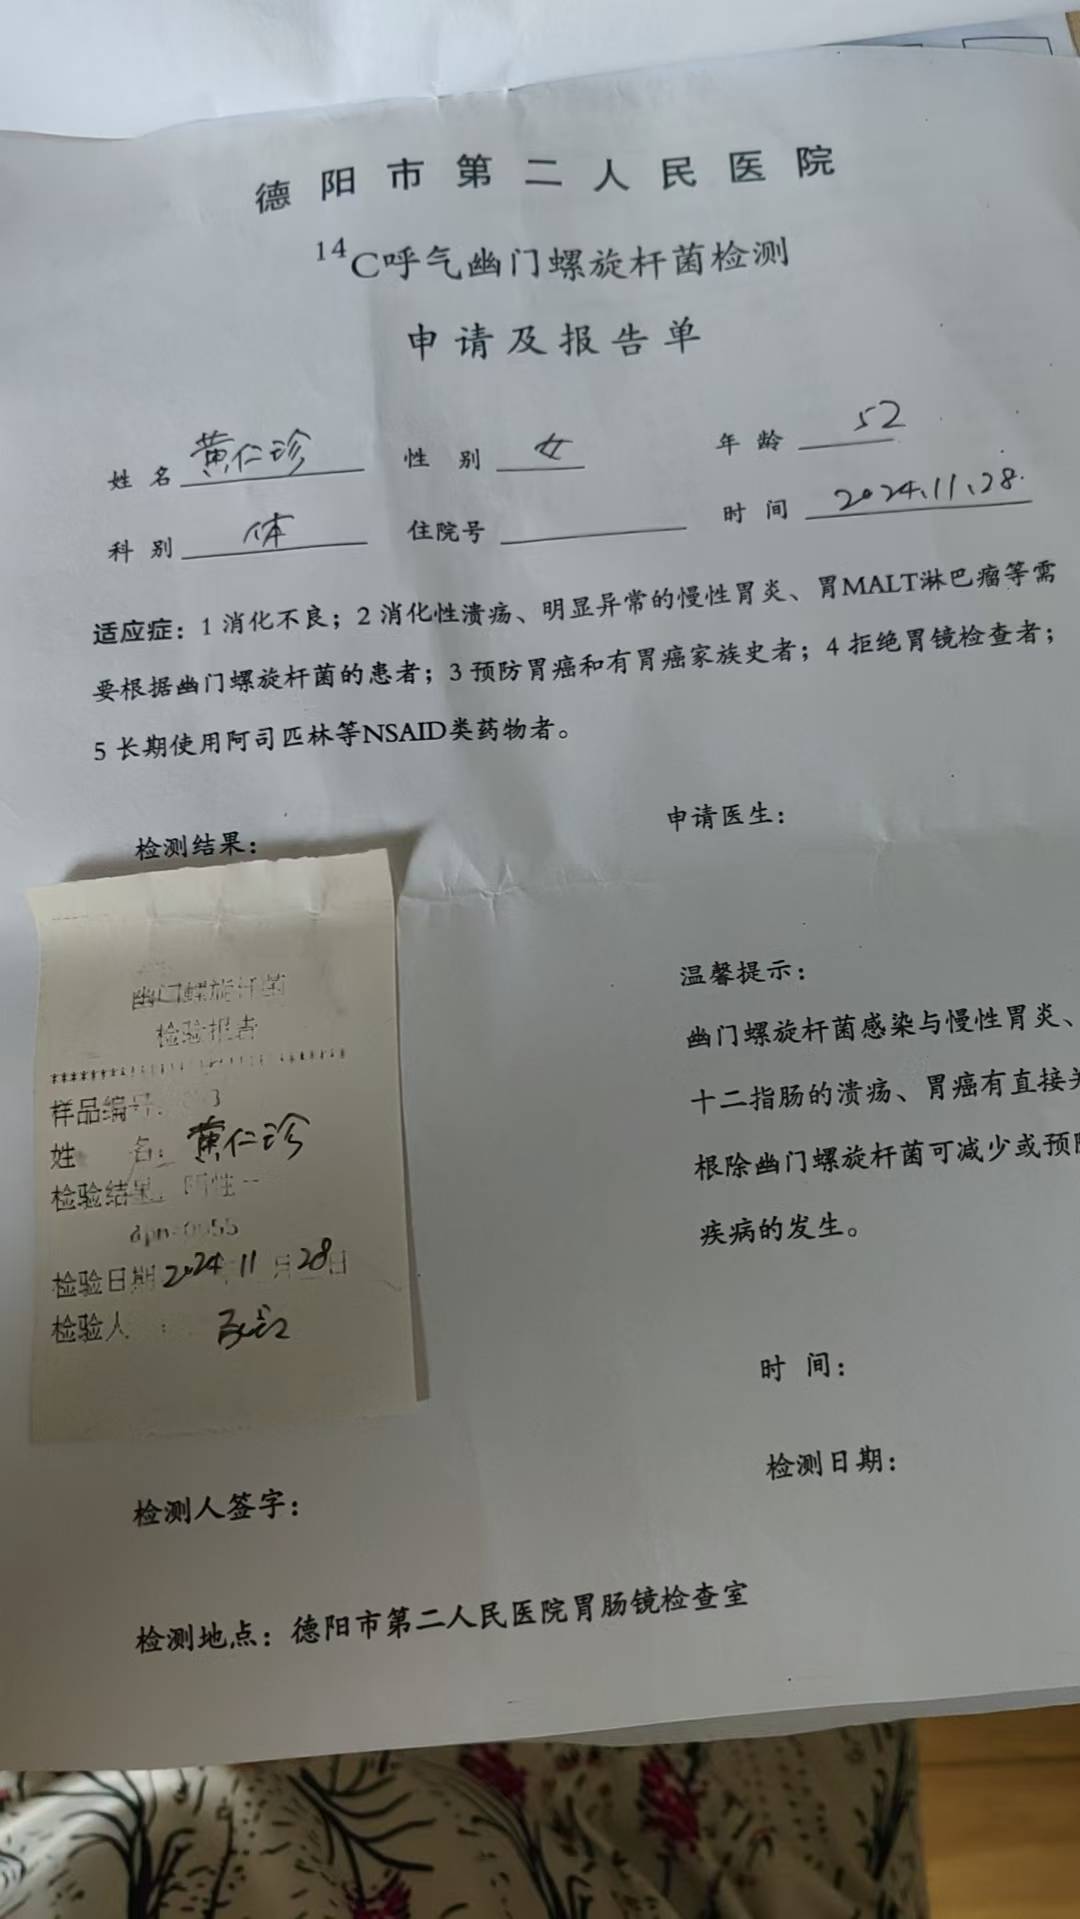 德阳市第二人民医院
14C呼气幽门螺旋杆菌检测
申请及报告单
姓名 黄仁珍 性别 女 年龄 52
科别 体 住院号 时间 2024.11.28.
适应症：1 消化不良；2 消化性溃疡、明显异常的慢性胃炎、胃MALT淋巴瘤等需
要根据幽门螺旋杆菌的患者；3 预防胃癌和有胃癌家族史者；4 拒绝胃镜检查者；
5 长期使用阿司匹林等NSAID类药物者。
检测结果：
申请医生：
幽门螺旋杆菌
检验报告
样品编号:
姓 名: 黄仁珍
检验结果:
检验日期 2024 11月28日
检验人:
温馨提示：
幽门螺旋杆菌感染与慢性胃炎、
十二指肠的溃疡、胃癌有直接
根除幽门螺旋杆菌可减少或预
疾病的发生。
时间：
检测日期：
检测人签字：
检测地点：德阳市第二人民医院胃肠镜检查室